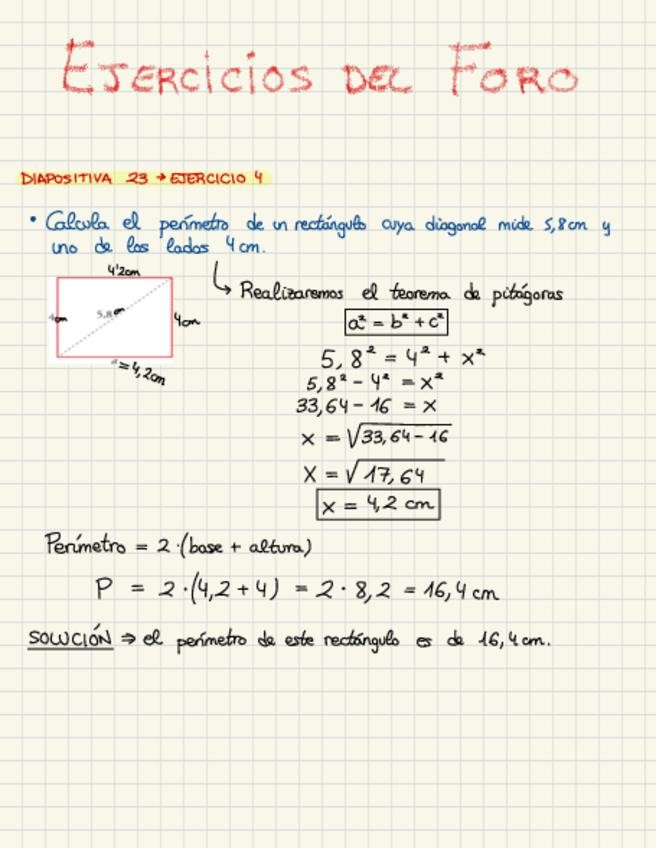 EJERCICIOS DEL FORO
DIAPOSITIVA 23 → EJERCICIO 4
• Calcula el perímetro de un rectángulo cuya diagonal mide 5,8cm y
uno de los lados 4cm.
4'2cm
↳ Realizaremos el teorema de pitágoras
4cm
5,8cm
4cm
a² = b² + c²
= 4,2cm
5,8² = 4² + x²
5,8² - 4² = x²
33,64 - 16 = x
x = √33,64 - 16
x = √17,64
x = 4,2 cm
Perímetro = 2 · (base + altura)
P = 2 · (4,2 + 4) = 2 · 8,2 = 16,4 cm
SOLUCIÓN ⇒ el perímetro de este rectángulo es de 16,4cm.